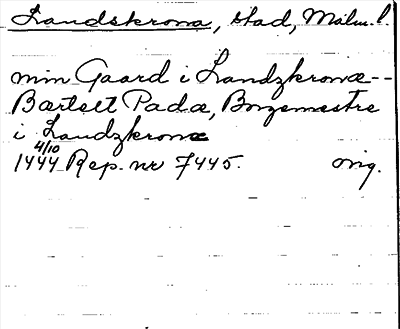 Landskrona, stad, Malm. l.
min Gaard i Landzkronæ --
Bærtelt Padæ, Borgemestre
i Landzkronæ
4/10
1444 Rep. nr 7445. orig.